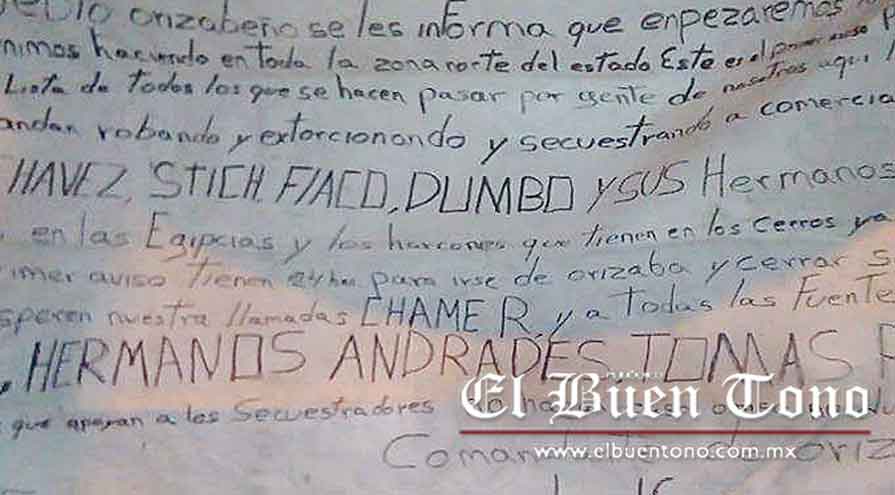 orizabeño se les informa que enpezaremos
nimos haciendo en toda la zona norte del estado Este es el primer aviso
Lista de todos los que se hacen pasar por gente de nosotros aqui
andan robando y extorcionondo y secuestrando a comercia
HAVEZ, STICH, FlACO, DUMBO y SUS Hermanos
en las Egipcias y los harcones que tienen en los cerros ya
imer aviso tienen para irse de orizaba y cerrar s
speren nuestra llamadas CHAME R, y a Todas las Fuente
, HERMANOS ANDRADES, TOMAS
que apoyan a los Secuestradores no
El Buen Tono
www.elbuentono.com.mx